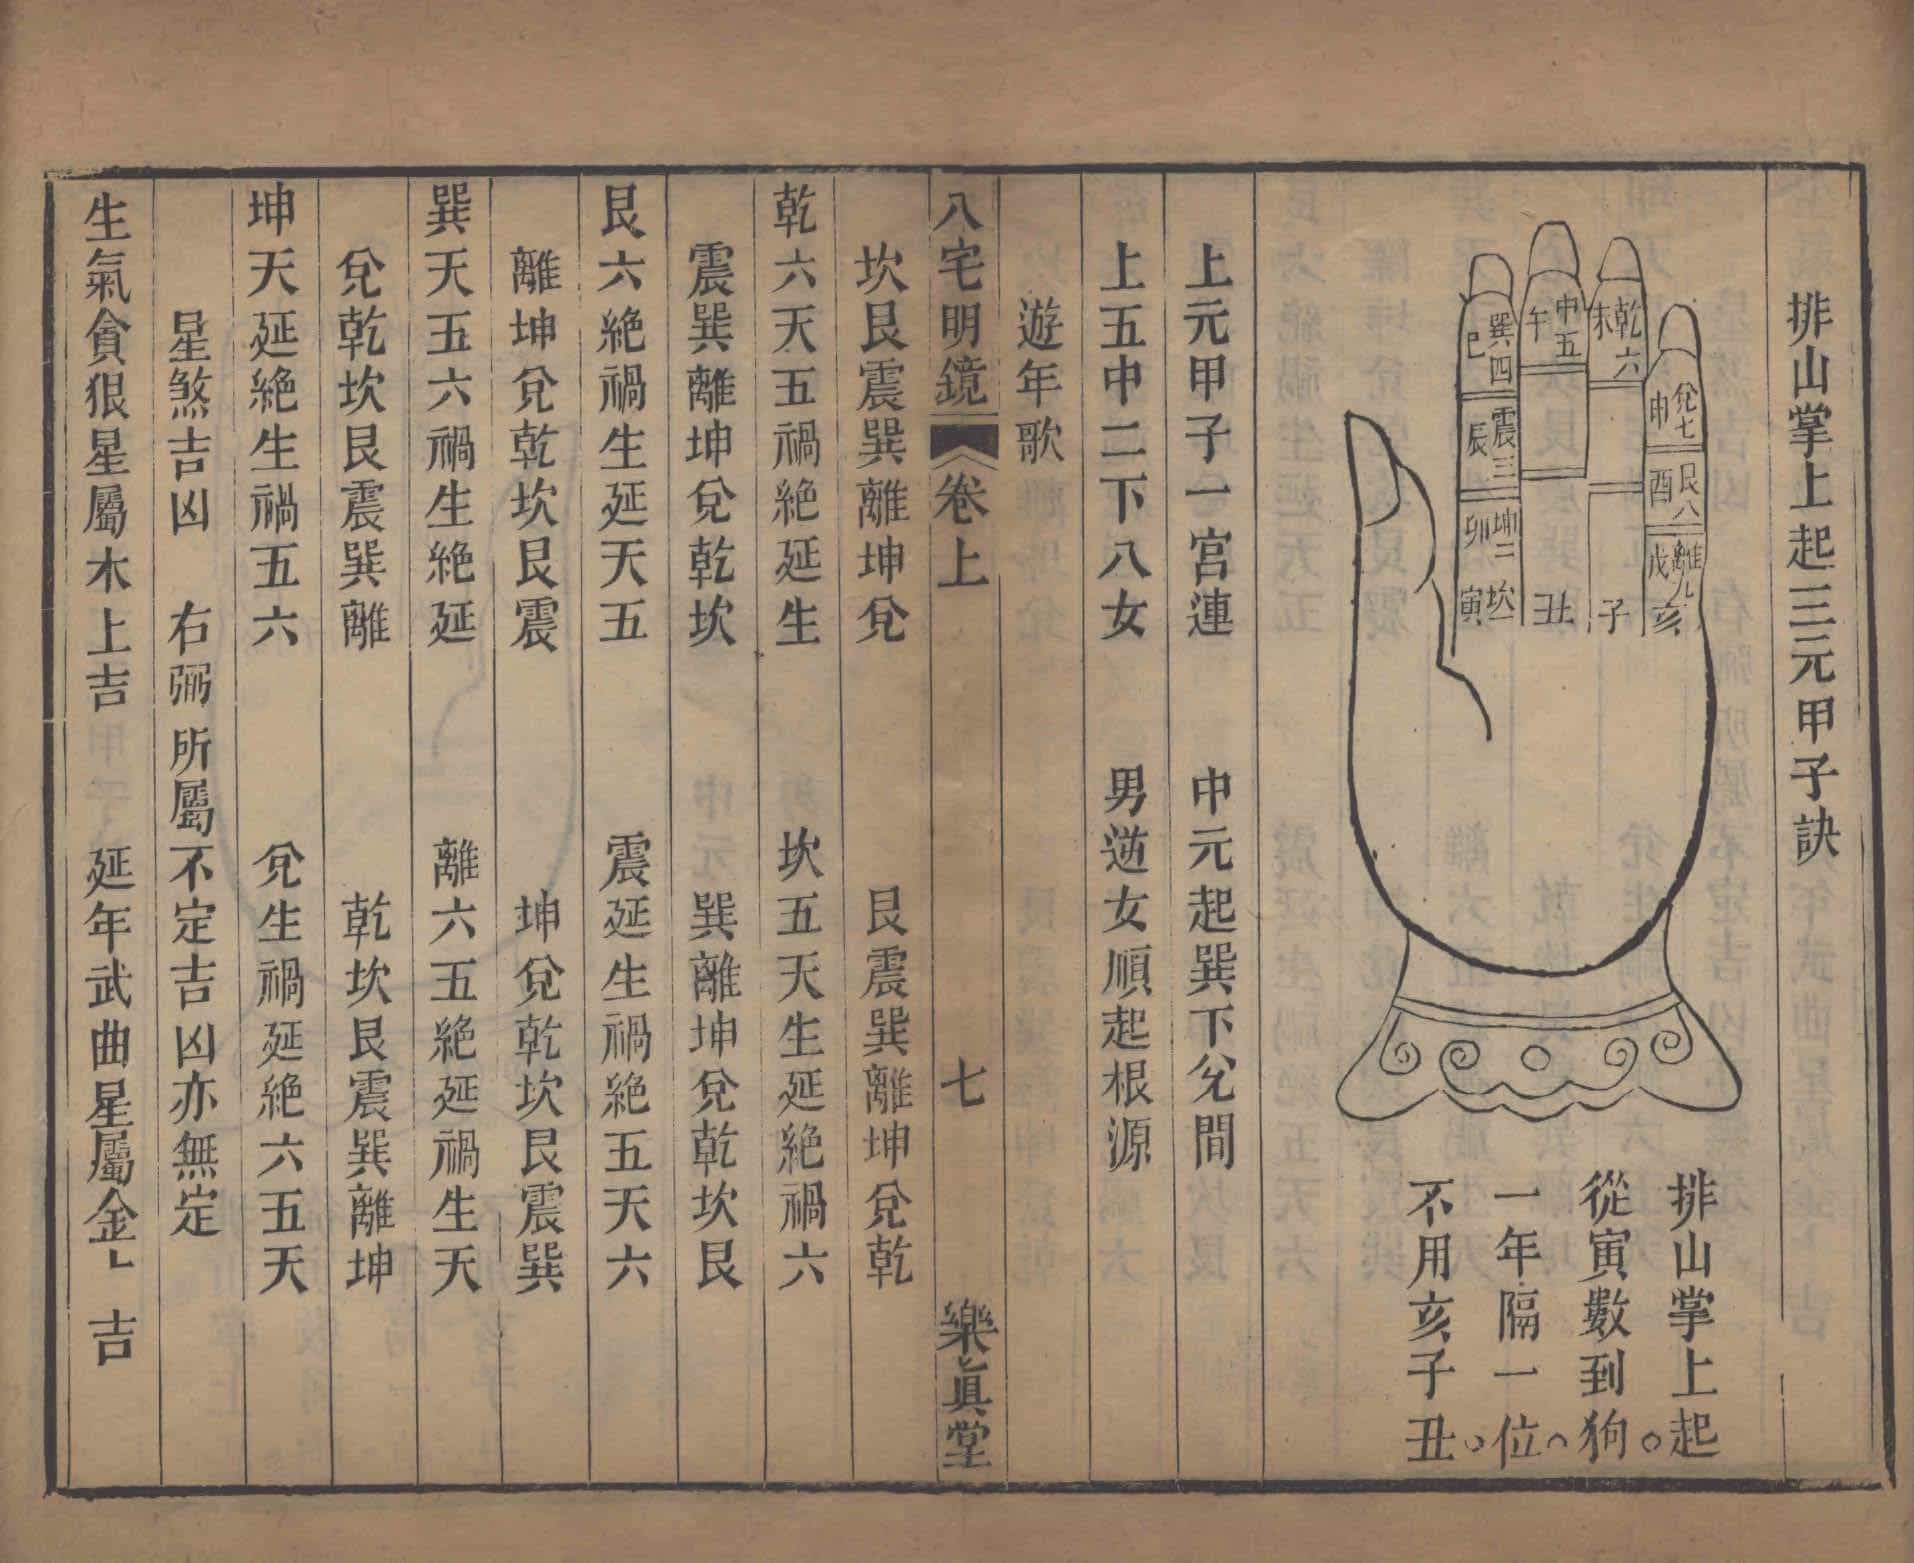 排山掌上起三元甲子訣
巽四 巳
震三 辰
坤二 卯
坎一 寅
中五 午
丑
乾六 未
子
兌七 申
艮八 酉
離九 戌
亥
排山掌上起
從寅數到狗
一年隔一位
不用亥子丑
上元甲子一宮連 中元起巽下兌間
上五中二下八女 男逆女順起根源
遊年歌
八宅明鏡 卷上 七 樂真堂
坎艮震巽離坤兌 艮震巽離坤兌乾
乾六天五禍絶延生 坎五天生延絶禍六
震巽離坤兌乾坎 巽離坤兌乾坎艮
艮六絶禍生延天五 震延生禍絶五天六
離坤兌乾坎艮震 坤兌乾坎艮震巽
巽天五六禍生絶延 離六五絶延禍生天
兌乾坎艮震巽離 乾坎艮震巽離坤
坤天延絶生禍五六 兌生禍延絶六五天
星煞吉凶 右弼所屬不定吉凶亦無定
生氣貪狼星屬木上吉 延年武曲星屬金上吉